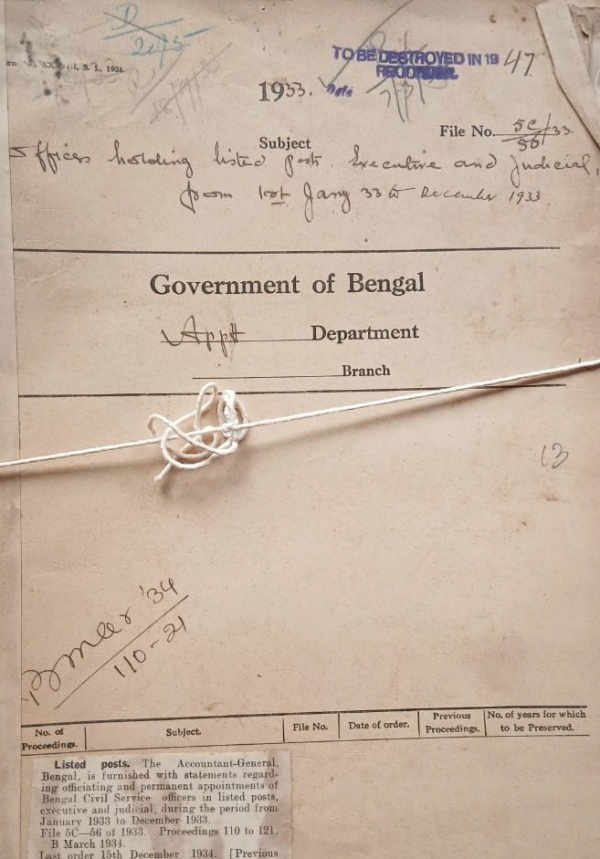 D
2075
B. L. 1924.
TO BE DESTROYED IN 1947
1933.
Date
Subject
File No. 5C/56/33
Officers holding listed posts Executive and Judicial,
from 1st Jany 33 to December 1933.
Government of Bengal
Appt Department
Branch
13
B Mar '34
110-21
No. of Proceedings.
Subject.
File No.
Date of order.
Previous Proceedings.
No. of years for which to be Preserved.
Listed posts. The Accountant-General,
Bengal, is furnished with statements regard-
ing officiating and permanent appointments of
Bengal Civil Service officers in listed posts,
executive and judicial, during the period from
January 1933 to December 1933.
File 5C—56 of 1933. Proceedings 110 to 121.
B March 1934.
Last order 15th December 1934. [Previous